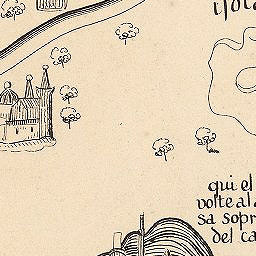 isola
qui el
volte al
sa sopr
del ca